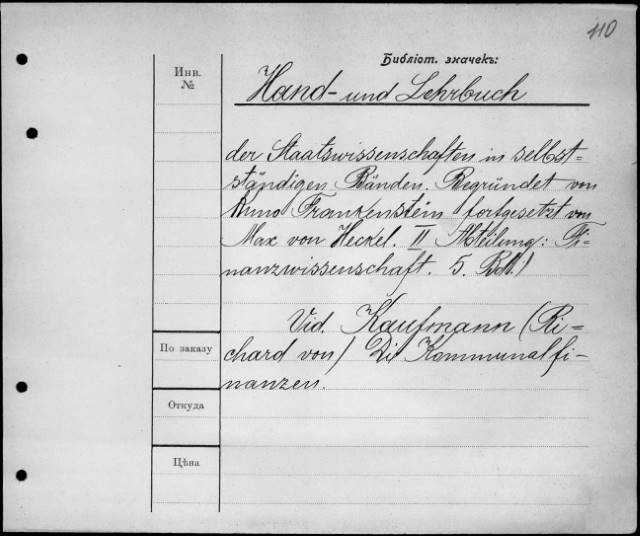 110
Библіот. значекъ:
Инв.
№
Hand- und Lehrbuch
der Staatswissenschaften in selbst=
ständigen Bänden. Begründet von
Kuno Frankenstein fortgesetzt von
Max von Heckel. II Abteilung: Fi=
nanzwissenschaft. 5. Bd.)
Vid. Kaufmann (Ri=
chard von) Die Kommunalfi=
nanzen.
По заказу
Откуда
Цѣна